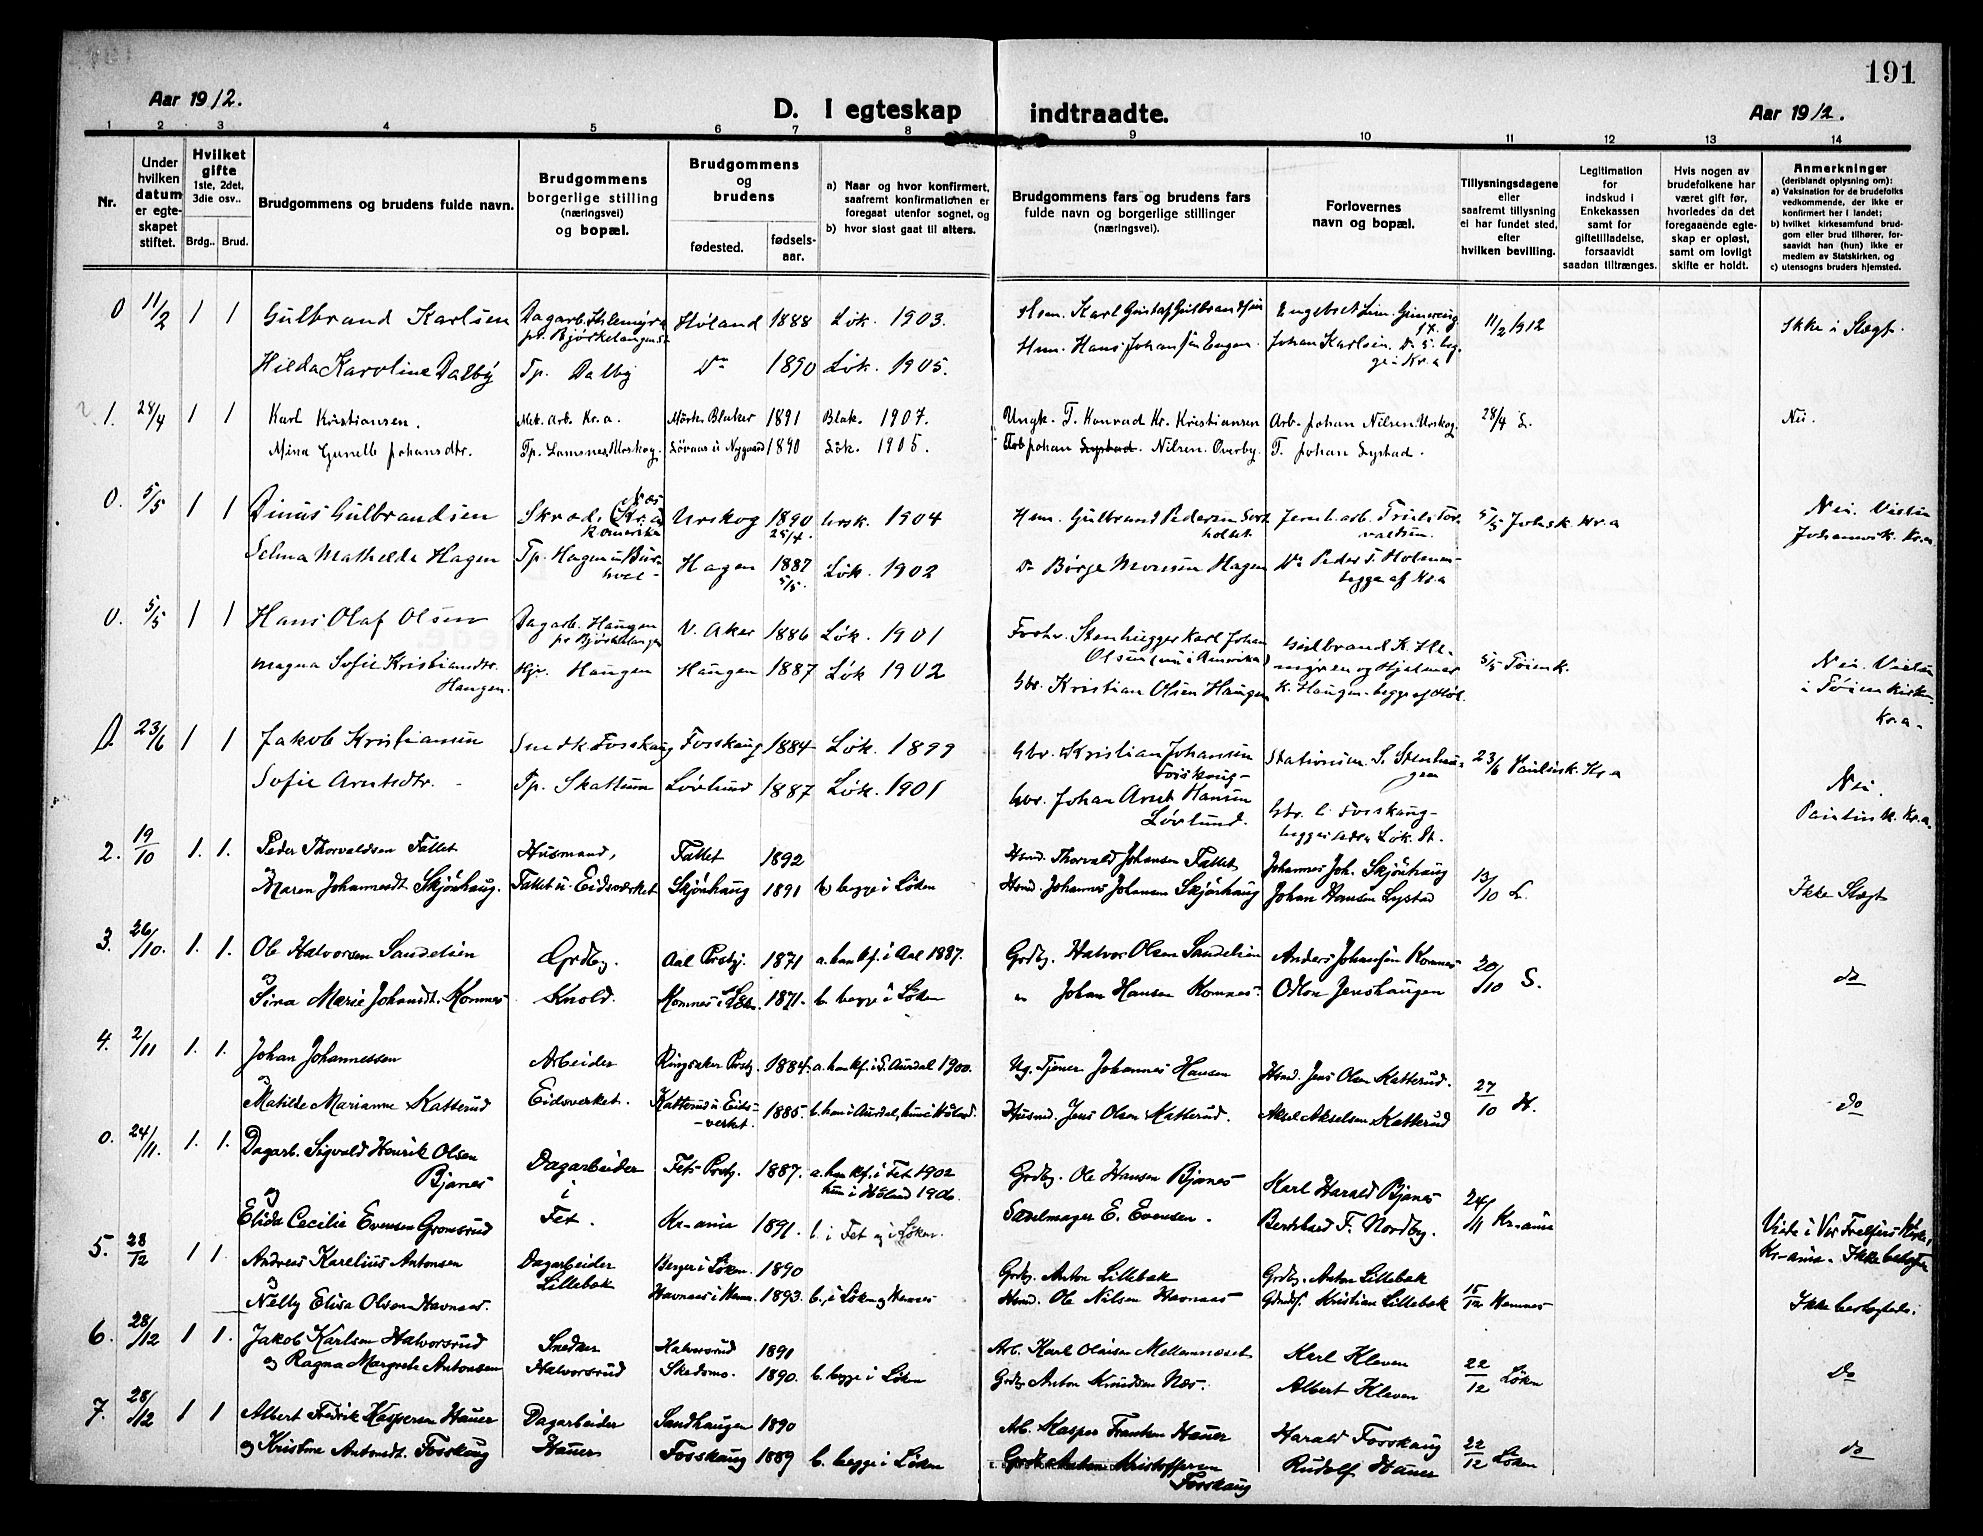 191
Aar 1912.
D. I egteskap indtraadte.
Aar 1912.
1 2 3 4 5 6 7 8 9 10 11 12 13 14
Nr.
Under hvilken datum er egteskapet stiftet.
Hvilket gifte 1ste, 2det, 3die osv..
Brdg.. Brud.
Brudgommens og brudens fulde navn.
Brudgommens borgerlige stilling (næringsvei) og bopæl.
Brudgommens og brudens
fødested. fødselsaar.
a) Naar og hvor konfirmert, saafremt konfirmationen er foregaat utenfor sognet, og
b) hvor sidst gaat til alters.
Brudgommens fars og brudens fars fulde navn og borgerlige stillinger (næringsvei).
Forlovernes navn og bopæl.
Tillysningsdagene eller saafremt tillysning ei har fundet sted, efter hvilken bevilling.
Legitimation for indskud i Enkekassen samt for giftetilladelse, forsaavidt saadan tiltrænges.
Hvis nogen av brudefolkene har været gift før, hvorledes da det foregaaende egteskap er opløst, samt om lovligt skifte er holdt.
Anmerkninger (deriblandt oplysning om):
a) Vaksination for de brudefolks vedkommende, der ikke er konfirmert her i landet;
b) hvilket kirkesamfund brudgom eller brud tilhører, forsaavidt han (hun) ikke er medlem av Statskirken, og
c) utensogns bruders hjemsted.
0 11/2 1 1 Gulbrand Karlsen Høland 1888 Løk. 1903. Hsm. Karl Gustaf Gulbrandsen 11/2 1912 Ikke i Slægt.
Hilda Karoline Dalby Tp. Dalby Do 1890 Løk. 1905. Hsm. Hans Johansen Engen Johan Karlsen
1. 28/4 1 1 Karl Kristiansen. Mek. Arb. Kr.a. Mørk Blaker 1891 Blak. 1907. Ungk. T. Konrad Kr. Kristiansen Arb. Johan Nilsen Urskog. 28/4 L. Nei.
Mina Gunelle Johansdtr. Tp. Lamsnes, Urskog. 1890 Løk. 1905. Johan Nilsen Overby. T. Johan Lystad.
0. 5/5 1 1 Dinus Gulbrandsen Skræd. (Kr.a Urskog 1890 25/4. Ursk. 1904 Hsm. Gulbrand Pedersen 5/5 Johsk. Kr.a Nei.
Selma Mathilda Hagen Tp. Hagen Hagen 1887 5/5. Løk. 1902 Do Børge Hagen Do Peder T. Holmen begge af Kr.a
0. 5/5 1 1 Hans Olaf Olsen Dagarb. Haugen pr Bjørkelangen V. Aker 1886 Løk. 1901 Forhv. Stenhugger Karl Johan Olsen (nu i Amerika) 5/5 Tøienk. Nei.
Magna Sofie Kristiansdtr. Haugen. Haugen Haugen 1887 Løk 1902 Gbr. Kristian Olsen Haugen K. Haugen begge af Høl. i Tøienkirken Kr.a.
0. 23/6 1 1 Jakob Kristiansen Snedk. Fosskaug Fosskaug 1884 Løk. 1899 Gbr. Kristian Johansen Fosskaug 23/6 Paulusk. Kr.a Nei.
Sofie Arntsdtr. Tp. Skattum Løvlund 1887 Løk. 1901 Gbr. Johan Arnt Hansen Løvlund. Kr.a.
2. 19/10 1. 1. Peder Thorvaldsen Fallet Husmand, Fallet 1892 Hsmd. Thorvald Johansen Fallet Johannes Joh. Skjønhaug 13/10 L. Ikke Slægt
og Maren Johannesdt. Skjønhaug. Fallet u. Eidsverket Skjønhaug 1891 b. begge i Løken Hsmd. Johannes Johansen Skjønhaug Johan Hansen Lystad
3. 26/10. 1. 1. Ole Halvorsen Sandelien Grdbr. Aal Prstgj. 1871 a. han kf. i Aal 1887. Grdbr. Halvor Olsen Sandelien Anders Johansen Komnes 20/10 S. do
og Sina Marie Johansdt. Komnes Knold. Komnes i Løken 1871. b. begge i Løken " Johan Hansen Komnes. Odlon Jenshaugen
4. 2/11 1. 1. Johan Johannessen Arbeider Ringsaker Prstgj. 1884. a. han kf. i S. Aurdal 1900. Ug. Tjener Johannes Hansen Hsmd. Jens Olsen Katterud. 27/10 H. do
og Matilde Marianne Katterud Eidsverket. Katterud u. Eidsverket. 1885. b. han i Aurdal, hun i Høland. Husmd. Jens Olsen Katterud. Aksel Akselsen Katterud
0. 24/11. 1. 1. Dagarb. Sigvald Henrik Olsen Bjanes Dagarbeider i Fet. Fets Prstgj. 1887. a. han kf. i Fet 1902 hun i Høland 1906. Grdbr. Ole Hansen Bjanes Karl Harald Bjanes 24/11 Kr-ania
og Elida Cecilie Evensen Gromsrud Kr-ania 1891. b. i Fet og i Løken. Sadelmager E. Evensen. Bernhard F. Nordby. Viede i Vor Frelsers Kirke, Kr-ania. Ikke beslegtede
5. 28/12 1 1. Andreas Karelius Antonsen Dagarbeider Lillebak Berger i Løken. 1890 Grdbr. Anton Lillebak Grdbr. Anton Lillebak 15/12 Hemnes
og Nelly Elisa Olsen Havnaas. Havnaas i Hemn. 1893. b., i Løken og Hemnes Hsmd. Ole Nilsen Havnaas Kristian Lillebak Ikke beslegtede
6. 28/12 1 1. Jakob Karlsen Halvorsrud Snedker Halvorsrud 1891 Arb. Karl Olaisen Mellemnæset Karl Kleven 22/12 Løken Do
og Ragna Margrethe Antonsen Halvorsrud Skedsmo. 1890. b. begge i Løken Grdbr. Anton Knudsen Næs. Albert Kleven
7. 28/12 1 1 Albert Fredrik Kaspersen Hauer Dagarbeider Sandhaugen 1890 Arb. Kasper Frantsen Hauer Harald Fosskaug 22/12 Løken do
og Kristine Antonsdt. Fosskaug Hauer Fosskaug 1889 b. begge i Løken Anton Kristoffersen Fosskaug Rudolf Hauer